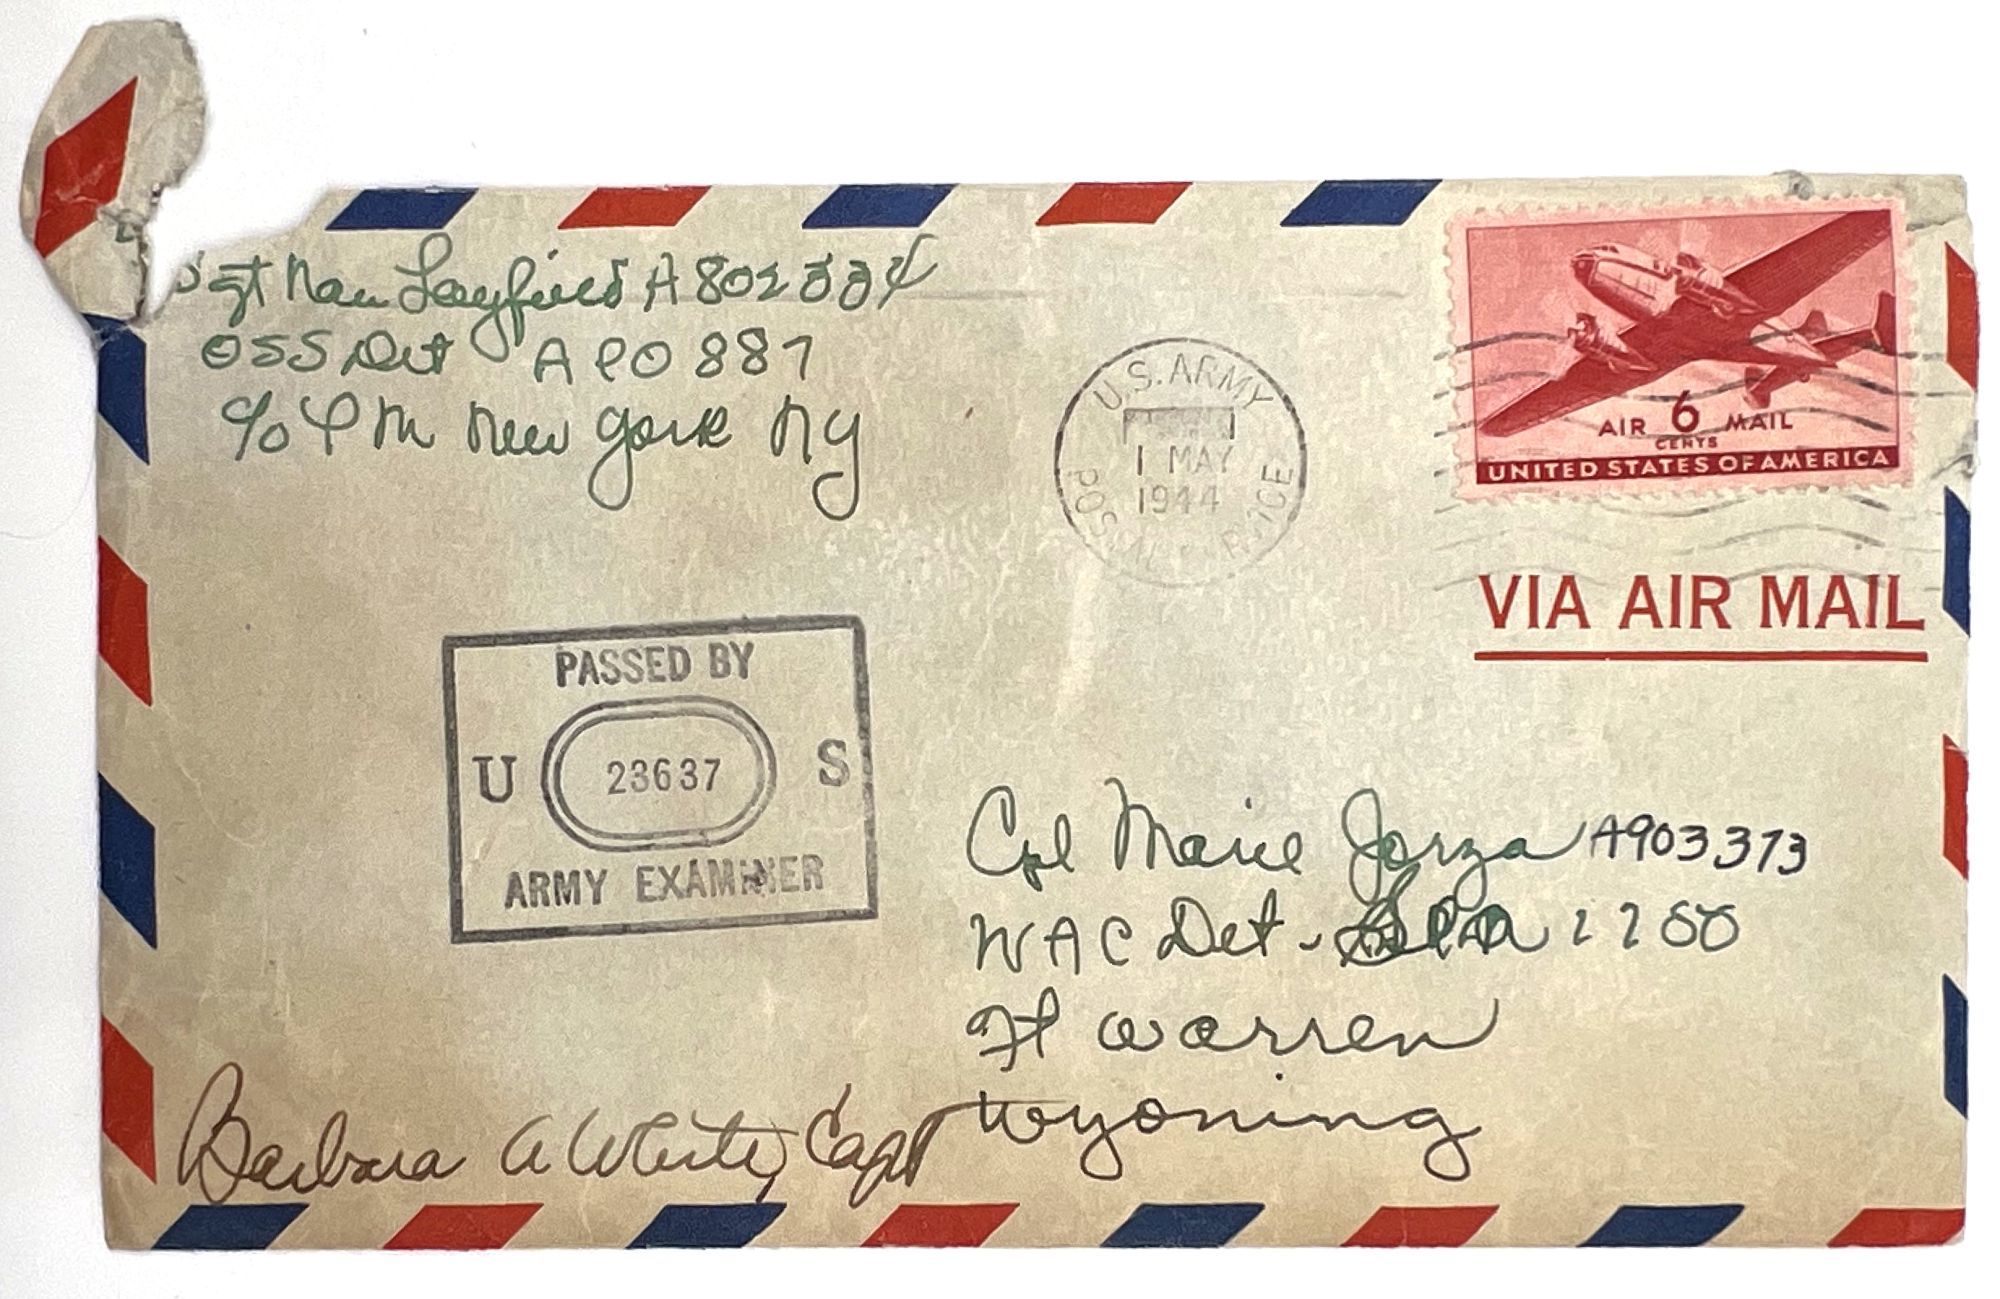 Sgt Nan Layfield A802334
OSS Det APO 887
c/o PM New York NY
U.S. ARMY
1 MAY
1944
POSTAL SERVICE
AIR 6 MAIL
CENTS
UNITED STATES OF AMERICA
VIA AIR MAIL
PASSED BY
U 23637 S
ARMY EXAMINER
Cpl Marie Jorza A903373
WAC Det - SCU
Ft Warren
Wyoming
Barbara A White, Capt